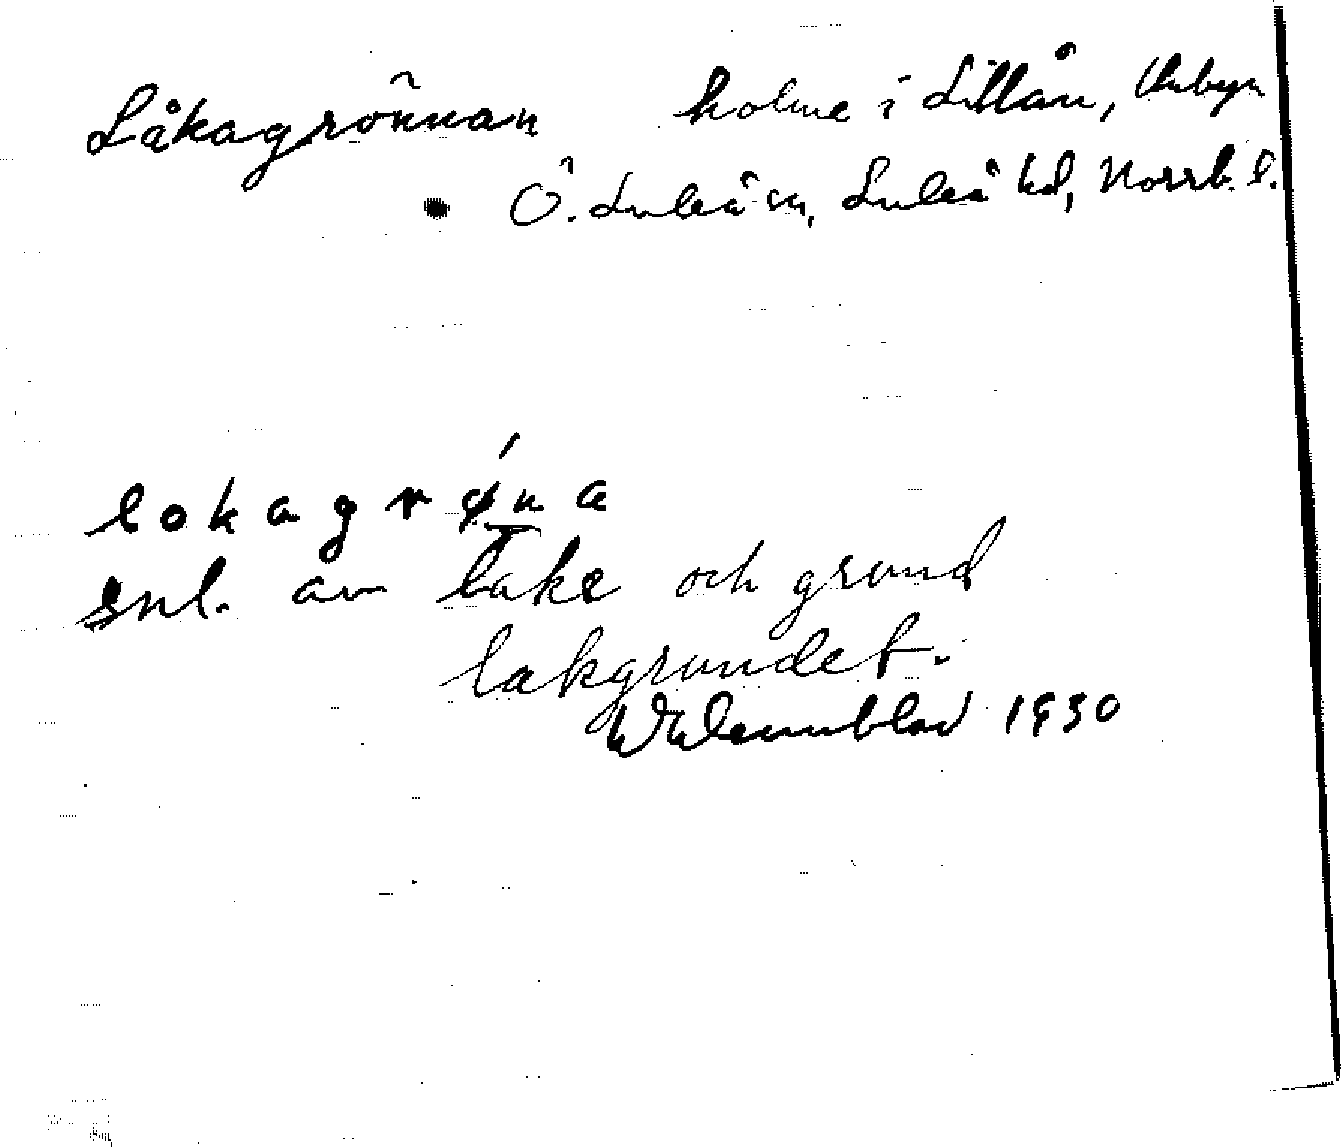 Låkagrönnan holme i Lillån, Unbyn
Ö. Luleå sn, Luleå hd, Norrb. l.
lokagrǿna
snl. av lake och grund
lakgrundet.
1930